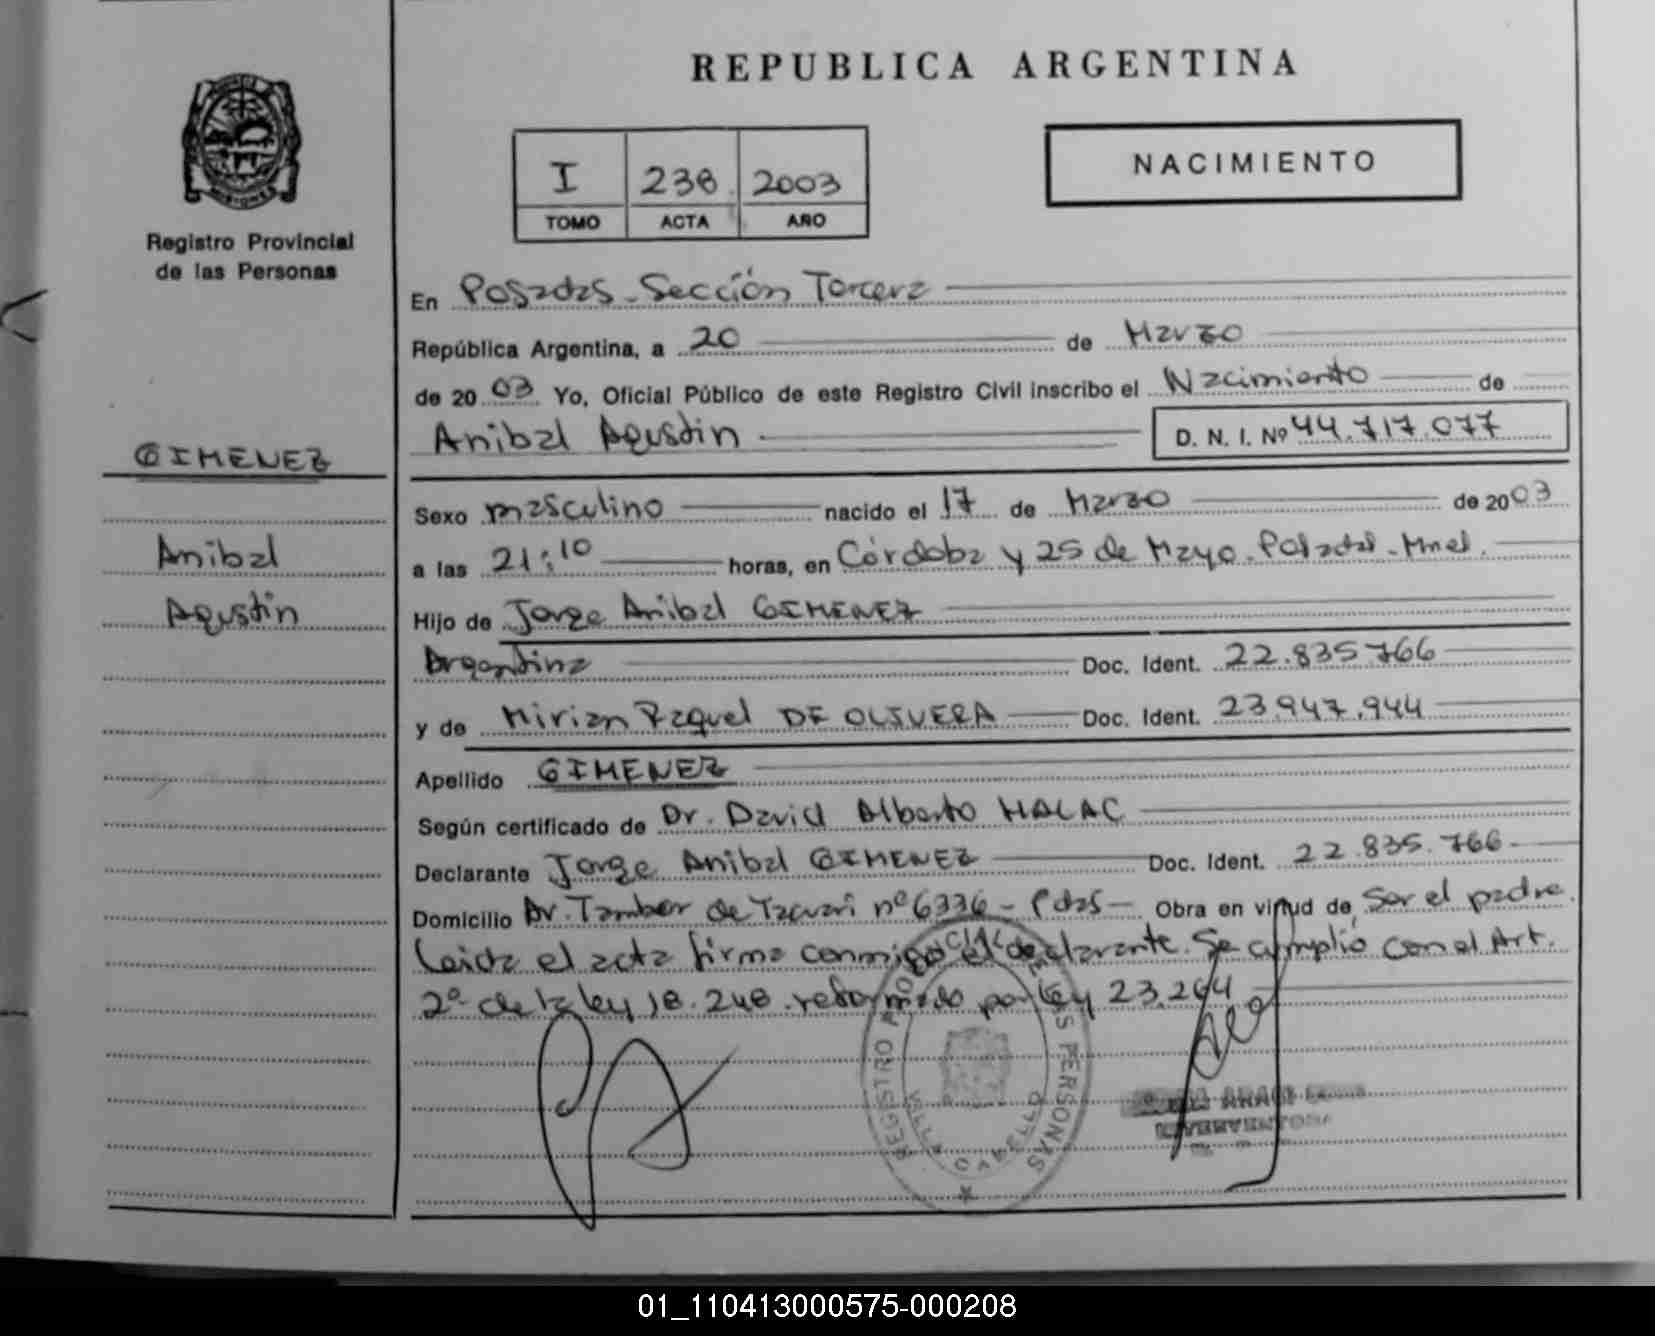 REPUBLICA ARGENTINA
MISIONES
Registro Provincial
de las Personas
I 238 2003
TOMO ACTA AÑO
NACIMIENTO
En Posadas - Sección Tercera
República Argentina, a 20 de Marzo
de 2003 Yo, Oficial Público de este Registro Civil inscribo el Nacimiento de
Anibal Agustin D. N. I. Nº 44.717.077
GIMENEZ
Anibal
Agustin
Sexo masculino nacido el 17 de Marzo de 2003
a las 21:10 horas, en Córdoba y 25 de Mayo. Posadas - Mnes.
Hijo de Jorge Anibal GIMENEZ
Argentina Doc. Ident. 22.835.766
y de Mirian Raquel DE OLIVERA Doc. Ident. 23.947.944
Apellido GIMENEZ
Según certificado de Dr. David Alberto HALAC
Declarante Jorge Anibal GIMENEZ Doc. Ident. 22.835.766
Domicilio Av. Tambor de Tacuari nº 6336 - Pdas - Obra en virtud de ser el padre.
Leida el acta firma conmigo el declarante. Se cumplió con el Art.
2º de la ley 18.248 reformado por ley 23.264
REGISTRO PROVINCIAL DE LAS PERSONAS
VILLA CABELLO
INTERVENTORA
01_110413000575-000208